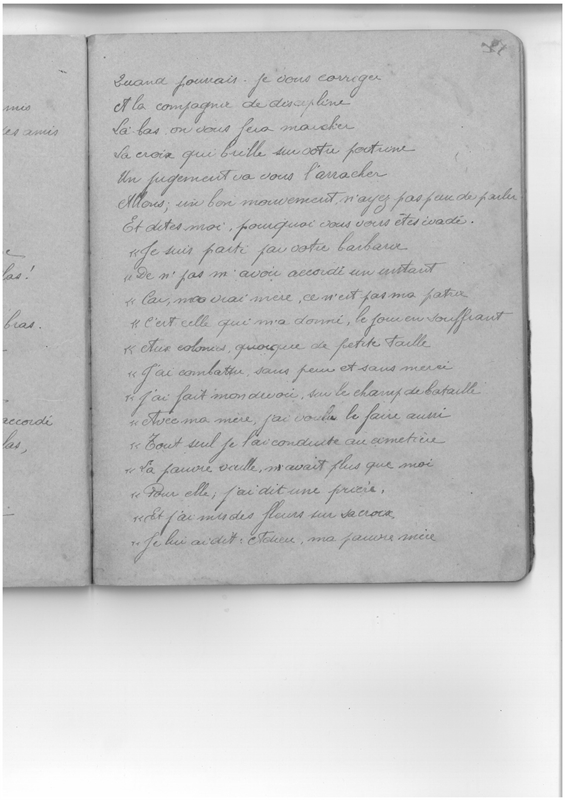 21
mis
des amis
las!
bras.
accordé
las,
Quand pouvais-je vous corriger
A la compagnie de discipline
La bas on vous fera marcher
La croix qui brille sur votre poitrine
Un jugement va vous l'arracher
Allons; un bon mouvement, n'ayez pas peur de parler
Et dites moi, pourquoi vous vous êtes évadé.
"Je suis parti par votre barbarie
"De n' pas m'avoir accordé un instant
"Car, ma vrai mère, ce n'est pas ma patrie
"C'est celle qui m'a donné, le jour en souffrant
"Aux colonies, quoique de petite taille
"J'ai combattu, sans peur et sans merci
"J'ai fait mon devoir, sur le champ de bataille
"Avec ma mère, j'ai voulu le faire aussi
"Tout seul je l'ai conduite au cimetière
"La pauvre vieille, n'avait plus que moi
"Pour elle, j'ai dit une prière,
"Et j'ai mis des fleurs sur sa croix
"Je lui ai dit: Adieu, ma pauvre mère